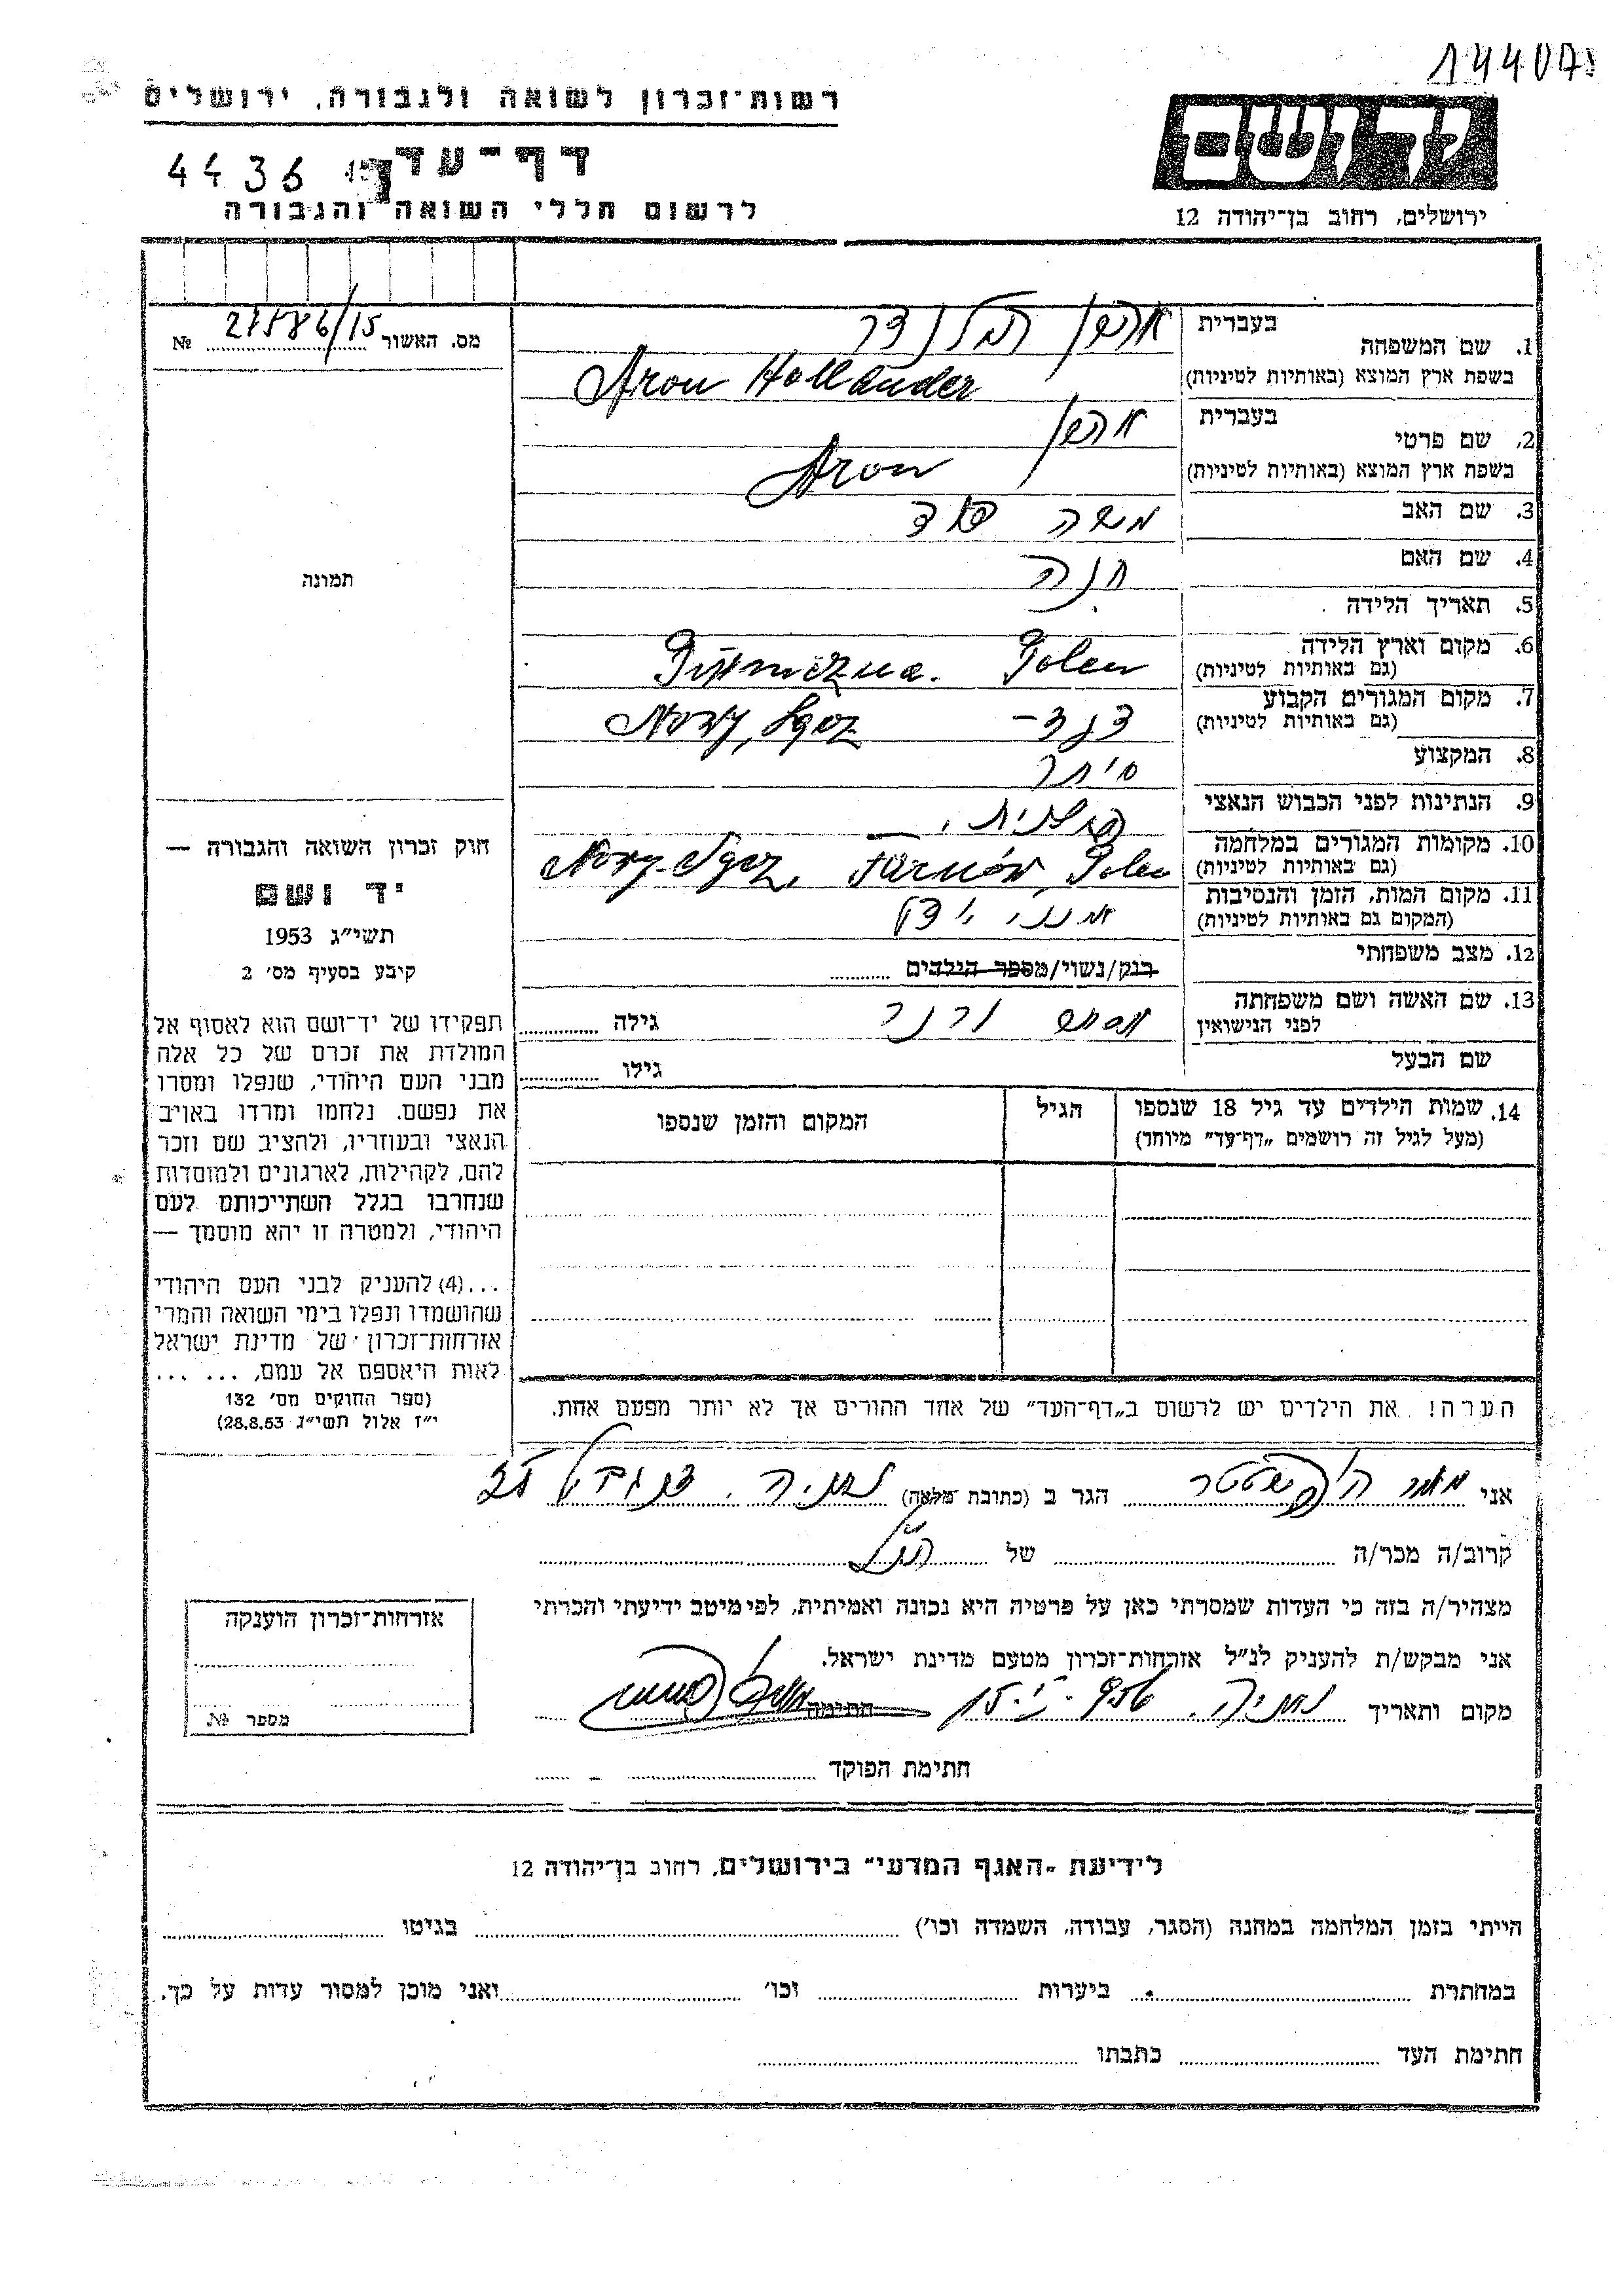 144075
רשות־זכרון לשואה ולגבורה, ירושלים
דף־עד
4436
לרשום חללי השואה והגבורה
ירושלים, רחוב בן־יהודה 12
מס. האשור № 27586/15
1. שם המשפחה
בעברית אהרון הולנדר
בשפת ארץ המוצא (באותיות לטיניות) Aron Hollander
2. שם פרטי
בעברית אהרון
בשפת ארץ המוצא (באותיות לטיניות) Aron
3. שם האב משה
4. שם האם חנה
5. תאריך הלידה
6. מקום וארץ הלידה
(גם באותיות לטיניות) Polen
7. מקום המגורים הקבוע
(גם באותיות לטיניות) צנז – Nowy, Sącz
8. המקצוע סוחר
9. הנתינות לפני הכבוש הנאצי פולנית
10. מקומות המגורים במלחמה
(גם באותיות לטיניות) Nowy-Sącz, Tarnów, Polen
11. מקום המות, הזמן והנסיבות
(המקום גם באותיות לטיניות) אינני יודע
12. מצב משפחתי
רוק/נשוי/מספר הילדים
13. שם האשה ושם משפחתה
לפני הנישואין
גילה
שם הבעל
גילו
14. שמות הילדים עד גיל 18 שנספו
(מעל לגיל זה רושמים „דף־עד" מיוחד)
הגיל
המקום והזמן שנספו
הערה! את הילדים יש לרשום ב„דף־העד" של אחד ההורים אך לא יותר מפעם אחת.
תמונה
חוק זכרון השואה והגבורה —
יד ושם
תשי"ג 1953
קיבע בסעיף מס׳ 2
תפקידו של יד־ושם הוא לאסוף אל
המולדת את זכרם של כל אלה
מבני העם היהודי, שנפלו ומסרו
את נפשם. נלחמו ומרדו באויב
הנאצי ובעוזריו, ולהציב שם וזכר
להם, לקהילות, לארגונים ולמוסדות
שנחרבו בגלל השתייכותם לעם
היהודי, ולמטרה זו יהא מוסמך —
...(4) להעניק לבני העם היהודי
שהושמדו ונפלו בימי השואה והמרי
אזרחות־זכרון של מדינת ישראל
לאות היאספם אל עמם, ... ...
(ספר החוקים מס׳ 132
י"ז אלול תשי"ג 28.8.53)
אני מאיר הגר ב (כתובת מלאה) נתניה,
קרוב/ה מכר/ה של הנ"ל
מצהיר/ה בזה כי העדות שמסרתי כאן על פרטיה היא נכונה ואמיתית, לפי מיטב ידיעתי והכרתי
אני מבקש/ת להעניק לנ"ל אזרחות־זכרון מטעם מדינת ישראל.
מקום ותאריך נתניה, חתימה
חתימת הפוקד
אזרחות־זכרון הוענקה
מספר №
לידיעת „האגף המדעי" בירושלים, רחוב בן־יהודה 12
הייתי בזמן המלחמה במחנה (הסגר, עבודה, השמדה וכו׳) בגיטו
במחתרת ביערות וכו׳ ואני מוכן למסור עדות על כך.
חתימת העד כתבתו